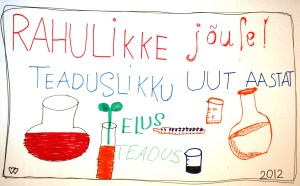 RAHULIKKE jõule!
TEADUSLIKKU UUT AASTAT
ELUS
TEADUS
2012